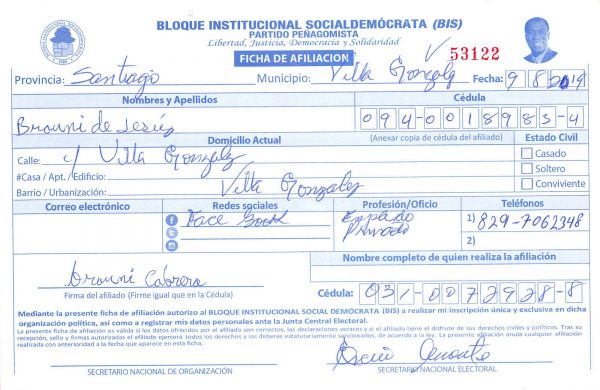 BLOQUE INSTITUCIONAL SOCIALDEMÓCRATA (BIS)
PARTIDO PEÑAGOMISTA
Libertad, Justicia, Democracia y Solidaridad
FICHA DE AFILIACION
53122
Provincia: Santiago Municipio: Villa Gonzalez Fecha: 9 8 2019
Nombres y Apellidos Cédula
Brauni de Jesús 094-0018983-4
Domicilio Actual (Anexar copia de cédula del afiliado) Estado Civil
Calle: c/ Villa Gonzalez Casado
#Casa / Apt. / Edificio: Soltero
Barrio / Urbanización: Villa Gonzalez Conviviente
Correo electrónico Redes sociales Profesión/Oficio Teléfonos
Face Book Emplado Privado 1) 829-7062348
2)
Nombre completo de quien realiza la afiliación
Brauni Cabrera
Firma del afiliado (Firme igual que en la Cédula) Cédula: 031-0072928-8
Mediante la presente ficha de afiliación autorizo al BLOQUE INSTITUCIONAL SOCIAL DEMÓCRATA (BIS) a realizar mi inscripción única y exclusiva en dicha
organización política, así como a registrar mis datos personales ante la Junta Central Electoral.
La presente ficha de afiliación es válida si los datos ofrecidos por el afiliado son correctos, las declaraciones veraces y si el afiliado tiene el disfrute de sus derechos civiles y políticos. Tras su
recepción, sello y firmas autorizadas el afiliado ejercerá todos los derechos y los deberes estatuariamente sancionados, de acuerdo a la ley. La presente afiliación anula cualquier afiliación
realizada con anterioridad a la fecha que aparece en esta ficha.
SECRETARIO NACIONAL DE ORGANIZACIÓN SECRETARIO NACIONAL ELECTORAL